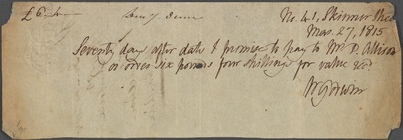 £6
No. 41, Skinner
Mar. 27, 1815
Seventy days after date I promise to pay to Mr. D. Allison
or order six pounds four shillings for value
WGodwin